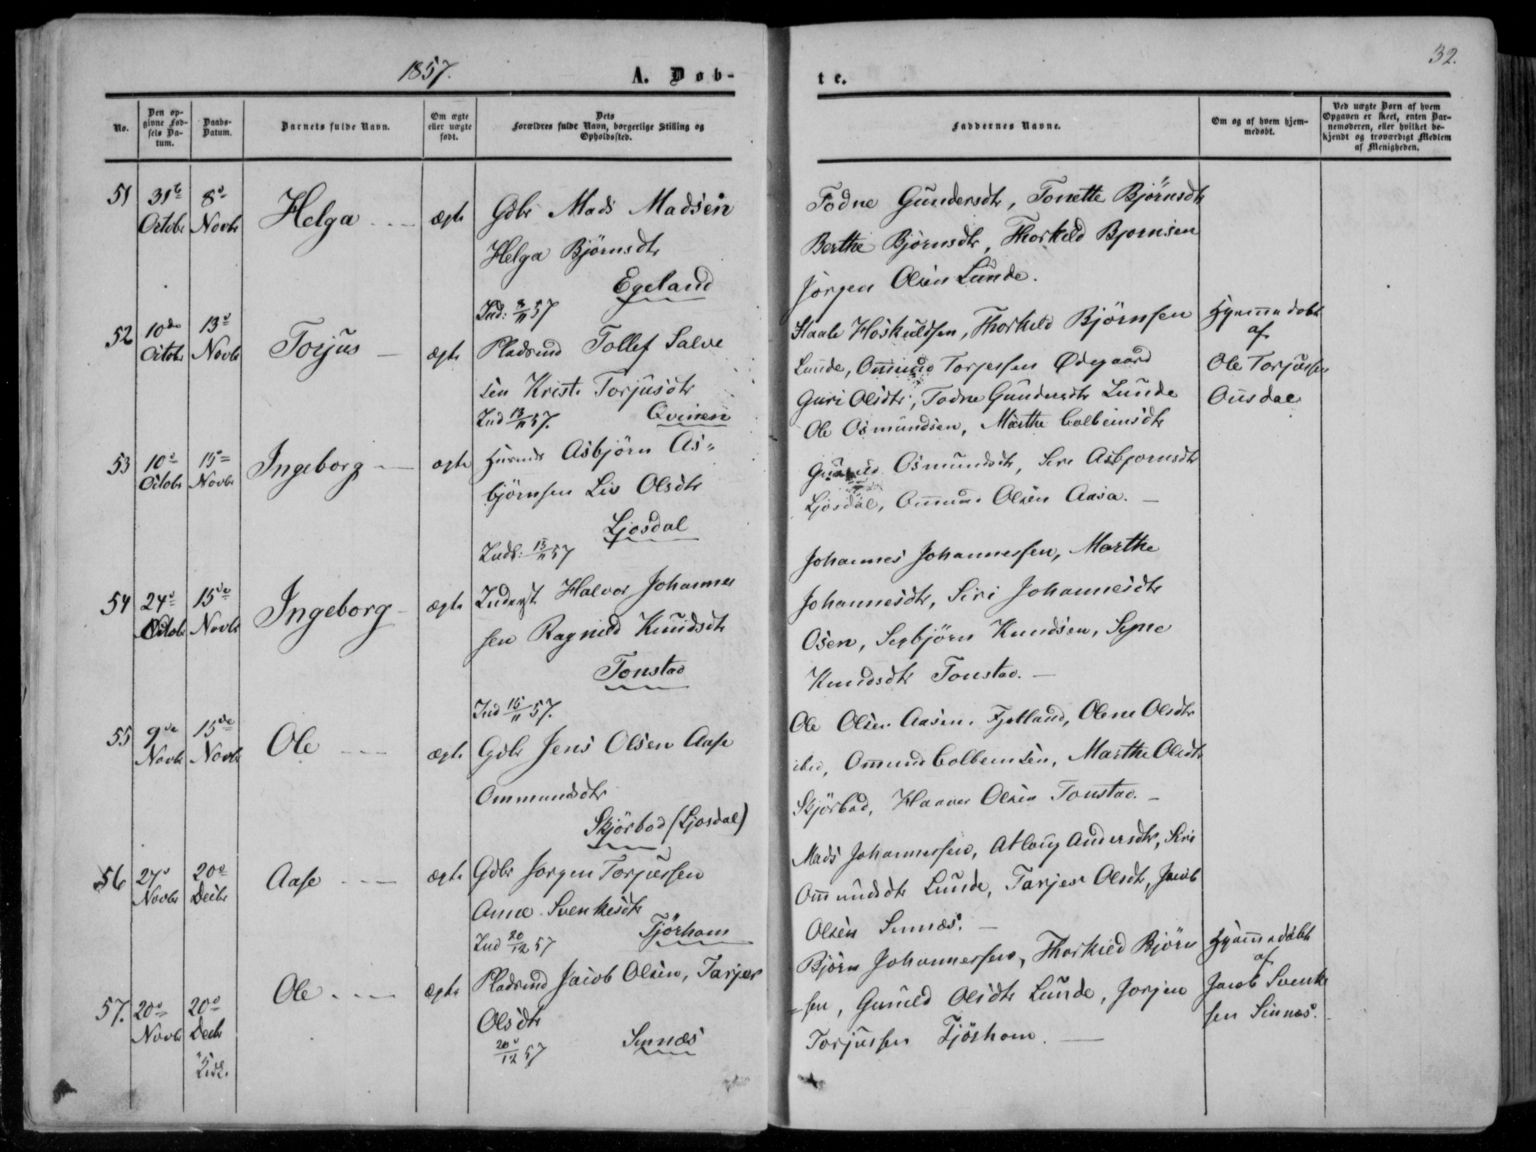 1857.
A. Døb-
te.
32.
No.
Den op-
givne Fød-
sels Da-
tum.
Daabs-
Datum.
Barnets fulde Navn.
Om ægte
eller uægte
født.
Dets
Forældres fulde Navn, borgerlige Stilling og
Opholdssted.
Faddernes Navne.
Om og af hvem hjem-
medøbt.
Ved uægte Børn af hvem
Opgaven er skeet, enten Bar-
nemoderen, eller hvilket be-
kjendt og troværdigt Medlem
af Menigheden.
51
31te
Octobr
8de
Novbr
Helga
ægte
Gdbr Mads Madsen
Helga Bjørnsdtr
Egeland
Ind: 8/11 57
Todne Gundersdtr, Tonette Bjørnsdtr
Berthe Bjørnsdtr, Thorkild Bjørnsen
Jørgen Olsen Lunde.
52
10de
Octobr
13de
Novbr
Torjus
ægte
Pladsmd Tollef Salve
sen Kristi Torjusdtr
Ind 13/11 57.
Qvinen
Staale Hoskuldsen, Thorkild Bjørnsen
Lunde, Ommund Torjussen Ødegaard
Guri Olsdtr, Todne Gundersdtr Lunde
Ole Osmundsen, Marthe Colbeinsdtr
Hjemmedøbt
af
Ole Torjussen
Ousdal
53
10de
Octobr
15de
Novbr
Ingeborg
ægte
Husmd Asbjørn As-
bjørnsen Liv Olsdtr
Ljosdal
Indb: 15/11 57
Osmundsdtr, Siri Asbjørnsdtr
Ljosdal, Ommund Olsen Aasa.
54
24de
Octobr
15de
Novbr
Ingeborg
ægte
Inderst Halvor Johannes
sen Ragnild Knudsdtr
Tonstad
Ind 15/11 57.
Johannes Johannessen, Marthe
Johannesdtr, Siri Johannesdtr
Osen, Seebjørn Knudsen, Signe
Knudsdtr Tonstad.
55
9de
Novbr
15de
Novbr
Ole
ægte
Gdbr Jens Olsen Aase
Ommundsdtr
Skjørbod (Ljosdal)
Ole Olsen Aasen, Fjotland, Olene Olsdtr
ibd, Ommund Colbeinsen, Marthe Olsdtr
Skjørbod, Haaver Olsen Tonstad.
56
27de
Novbr
20de
Decbr
Aase
ægte
Gdbr Jørgen Torjussen
Anna Svenkesdtr
Ind 20/12 57
Tjørhom
Mads Johannessen, Atlaug Andersdtr, Siri
Ommundsdtr Lunde, Tarjer Olsdtr, Jacob
Olsen Sinnæs.
57.
20de
Novbr
20de
Decbr
Ole
ægte
Pladsmd Jacob Olsen, Tarjer
Olsdtr
20/12 57
Sinnæs
Bjørn Johannessen, Thorkild Bjørn
-sen, Gunild Olsdtr Lunde, Jørgen
Torjussen Tjørhom.
Hjemmedøbt
af
Jacob Svenke
sen Sinnæs.